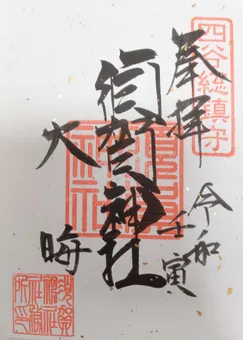 四谷総鎮守
奉拝
令和
壬寅
須賀神社
須賀神社
大
晦